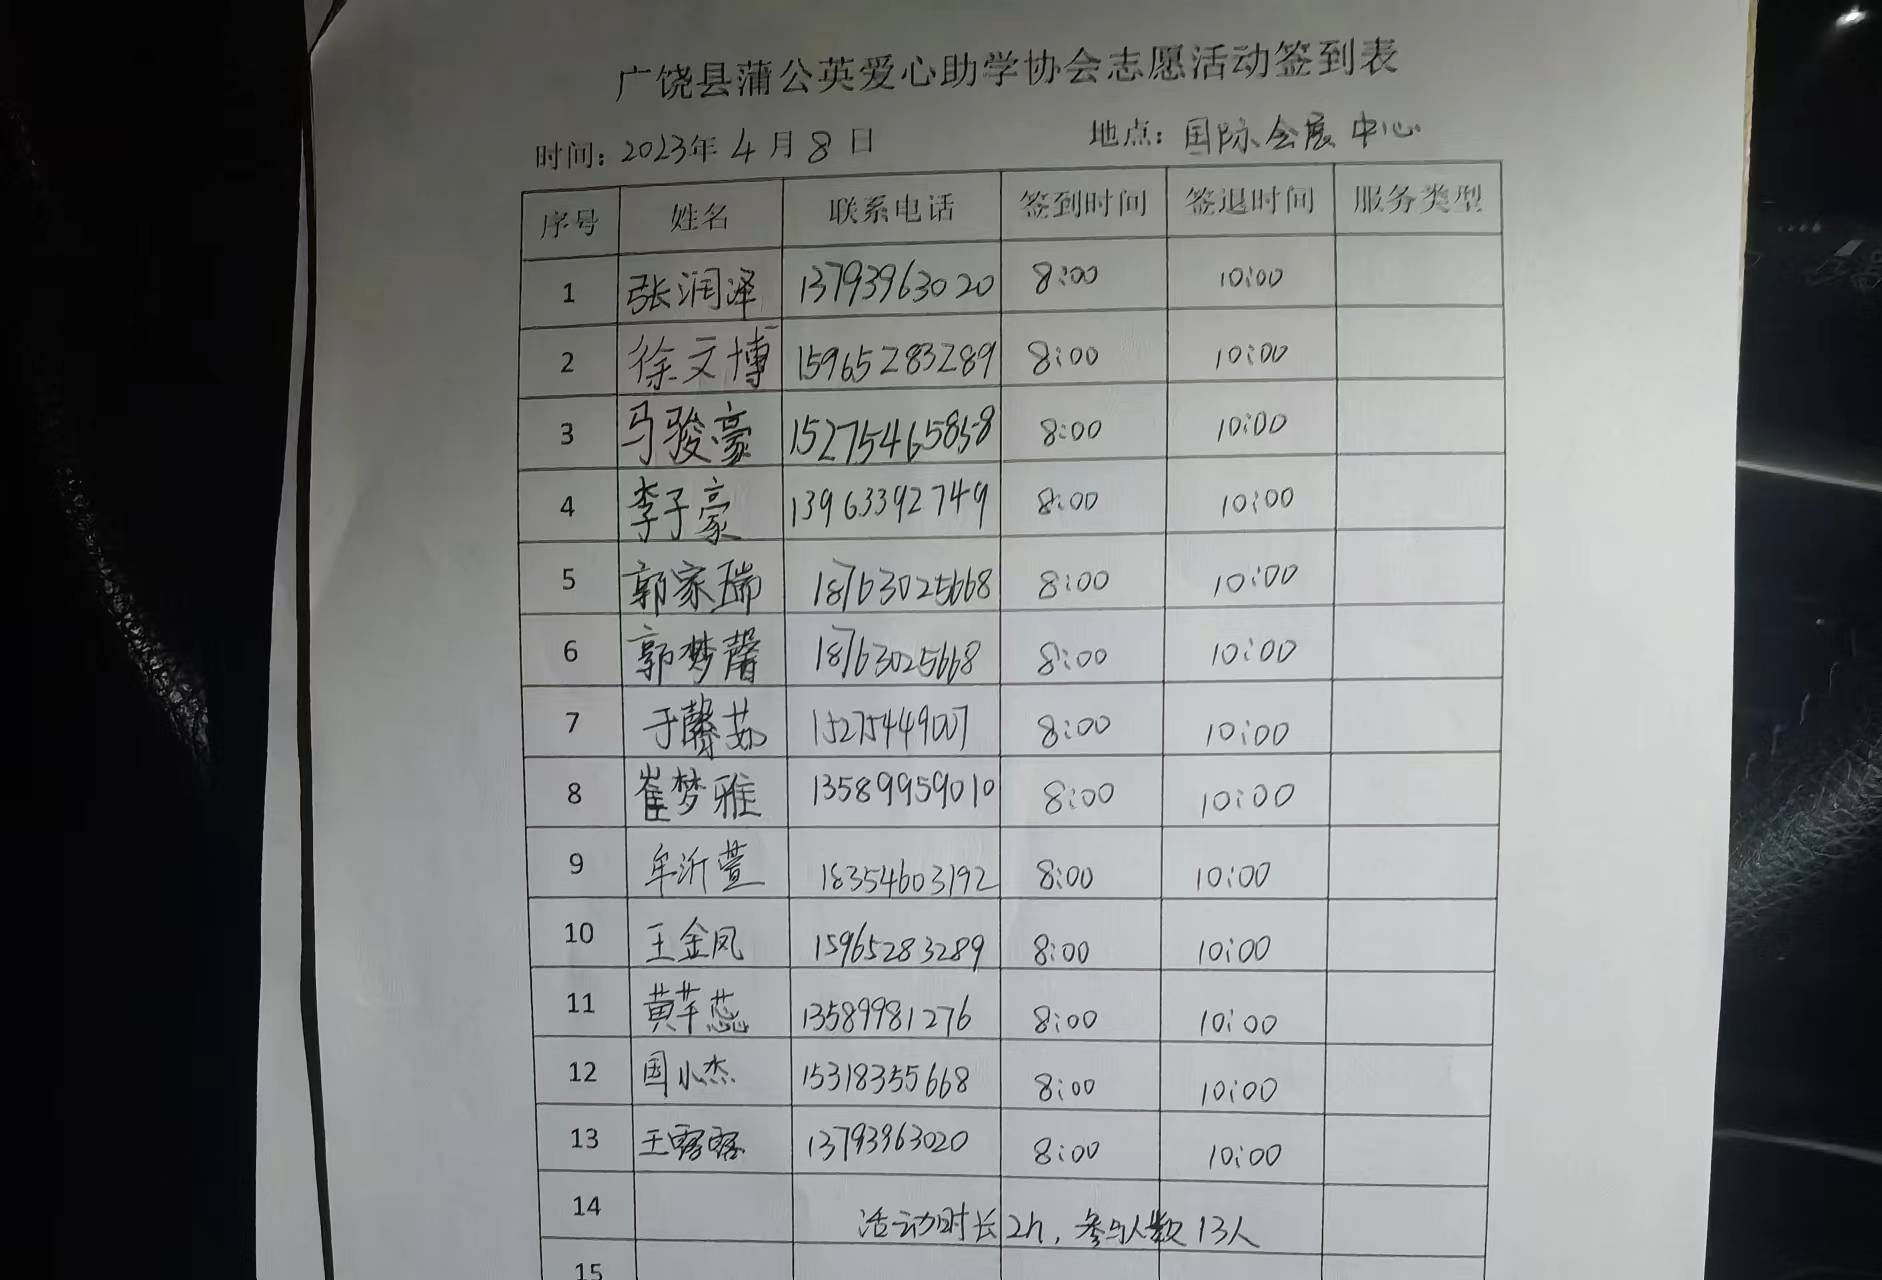 广饶县蒲公英爱心助学协会志愿活动签到表
时间：2023年4月8日 地点：国际会展中心
序号 姓名 联系电话 签到时间 签退时间 服务类型
1 张润泽 13793963020 8:00 10:00
2 徐文博 15965283289 8:00 10:00
3 马骏豪 15275465858 8:00 10:00
4 李子豪 13963392749 8:00 10:00
5 郭家瑞 18763025668 8:00 10:00
6 郭梦馨 18763025668 8:00 10:00
7 于馨茹 15275449007 8:00 10:00
8 崔梦雅 13589959010 8:00 10:00
9 牟沂萱 18354603192 8:00 10:00
10 王金凤 15965283289 8:00 10:00
11 黄芊蕊 13589981276 8:00 10:00
12 国小杰 15318355668 8:00 10:00
13 王露露 13793963020 8:00 10:00
14 活动时长2h，参与人数13人
15